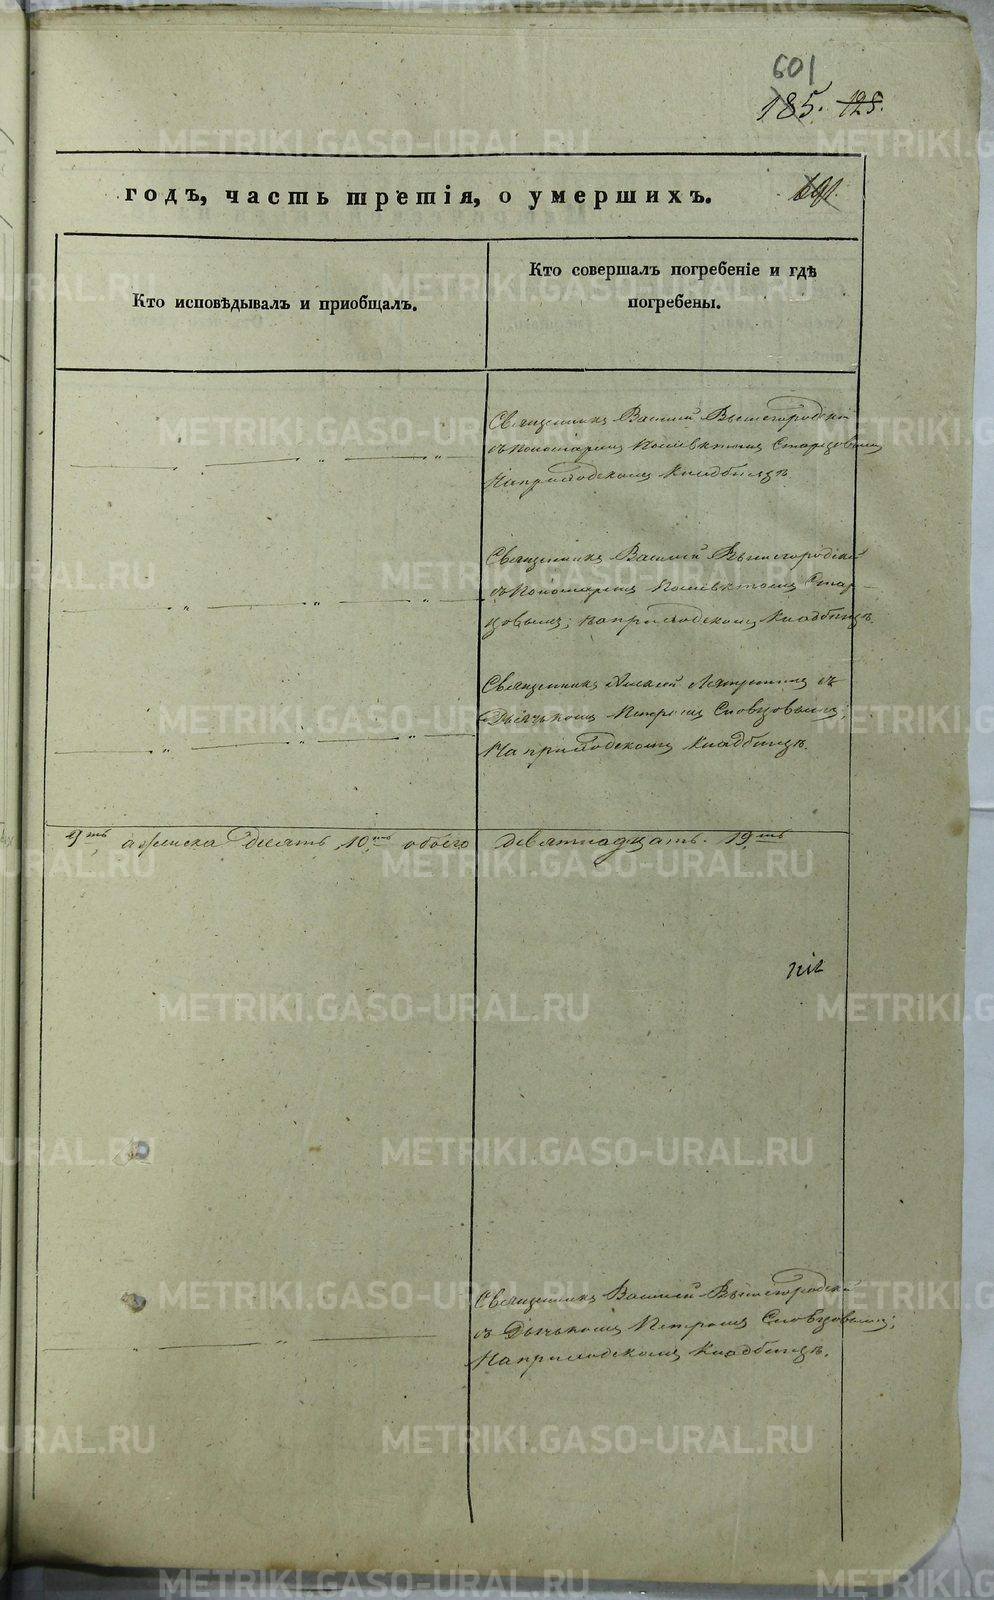 601
185. 125.
годъ, часть третія, о умершихъ.
191.
Кто исповѣдывалъ и приобщалъ.
Кто совершалъ погребеніе и гдѣ
погребены.
Священникъ Василій Вышегородскій
съ Пономаремъ Поліевктомъ Старцовымъ
На приходскомъ Кладбищѣ.
Священникъ Василій Вышегородскій
съ Пономаремъ Поліевктомъ Стар-
цовымъ; на приходскомъ Кладбищѣ.
Священникъ Алексѣй съ
Дьячкомъ Петромъ Словцовымъ;
На приходскомъ Кладбищѣ.
9ть, а женска десять 10ть обоего девятнадцать. 19ть
Священникъ Василій Вышегородскій
съ Дьячкомъ Петромъ Словцовымъ;
На приходскомъ Кладбищѣ.
METRIKI.GASO-URAL.RU